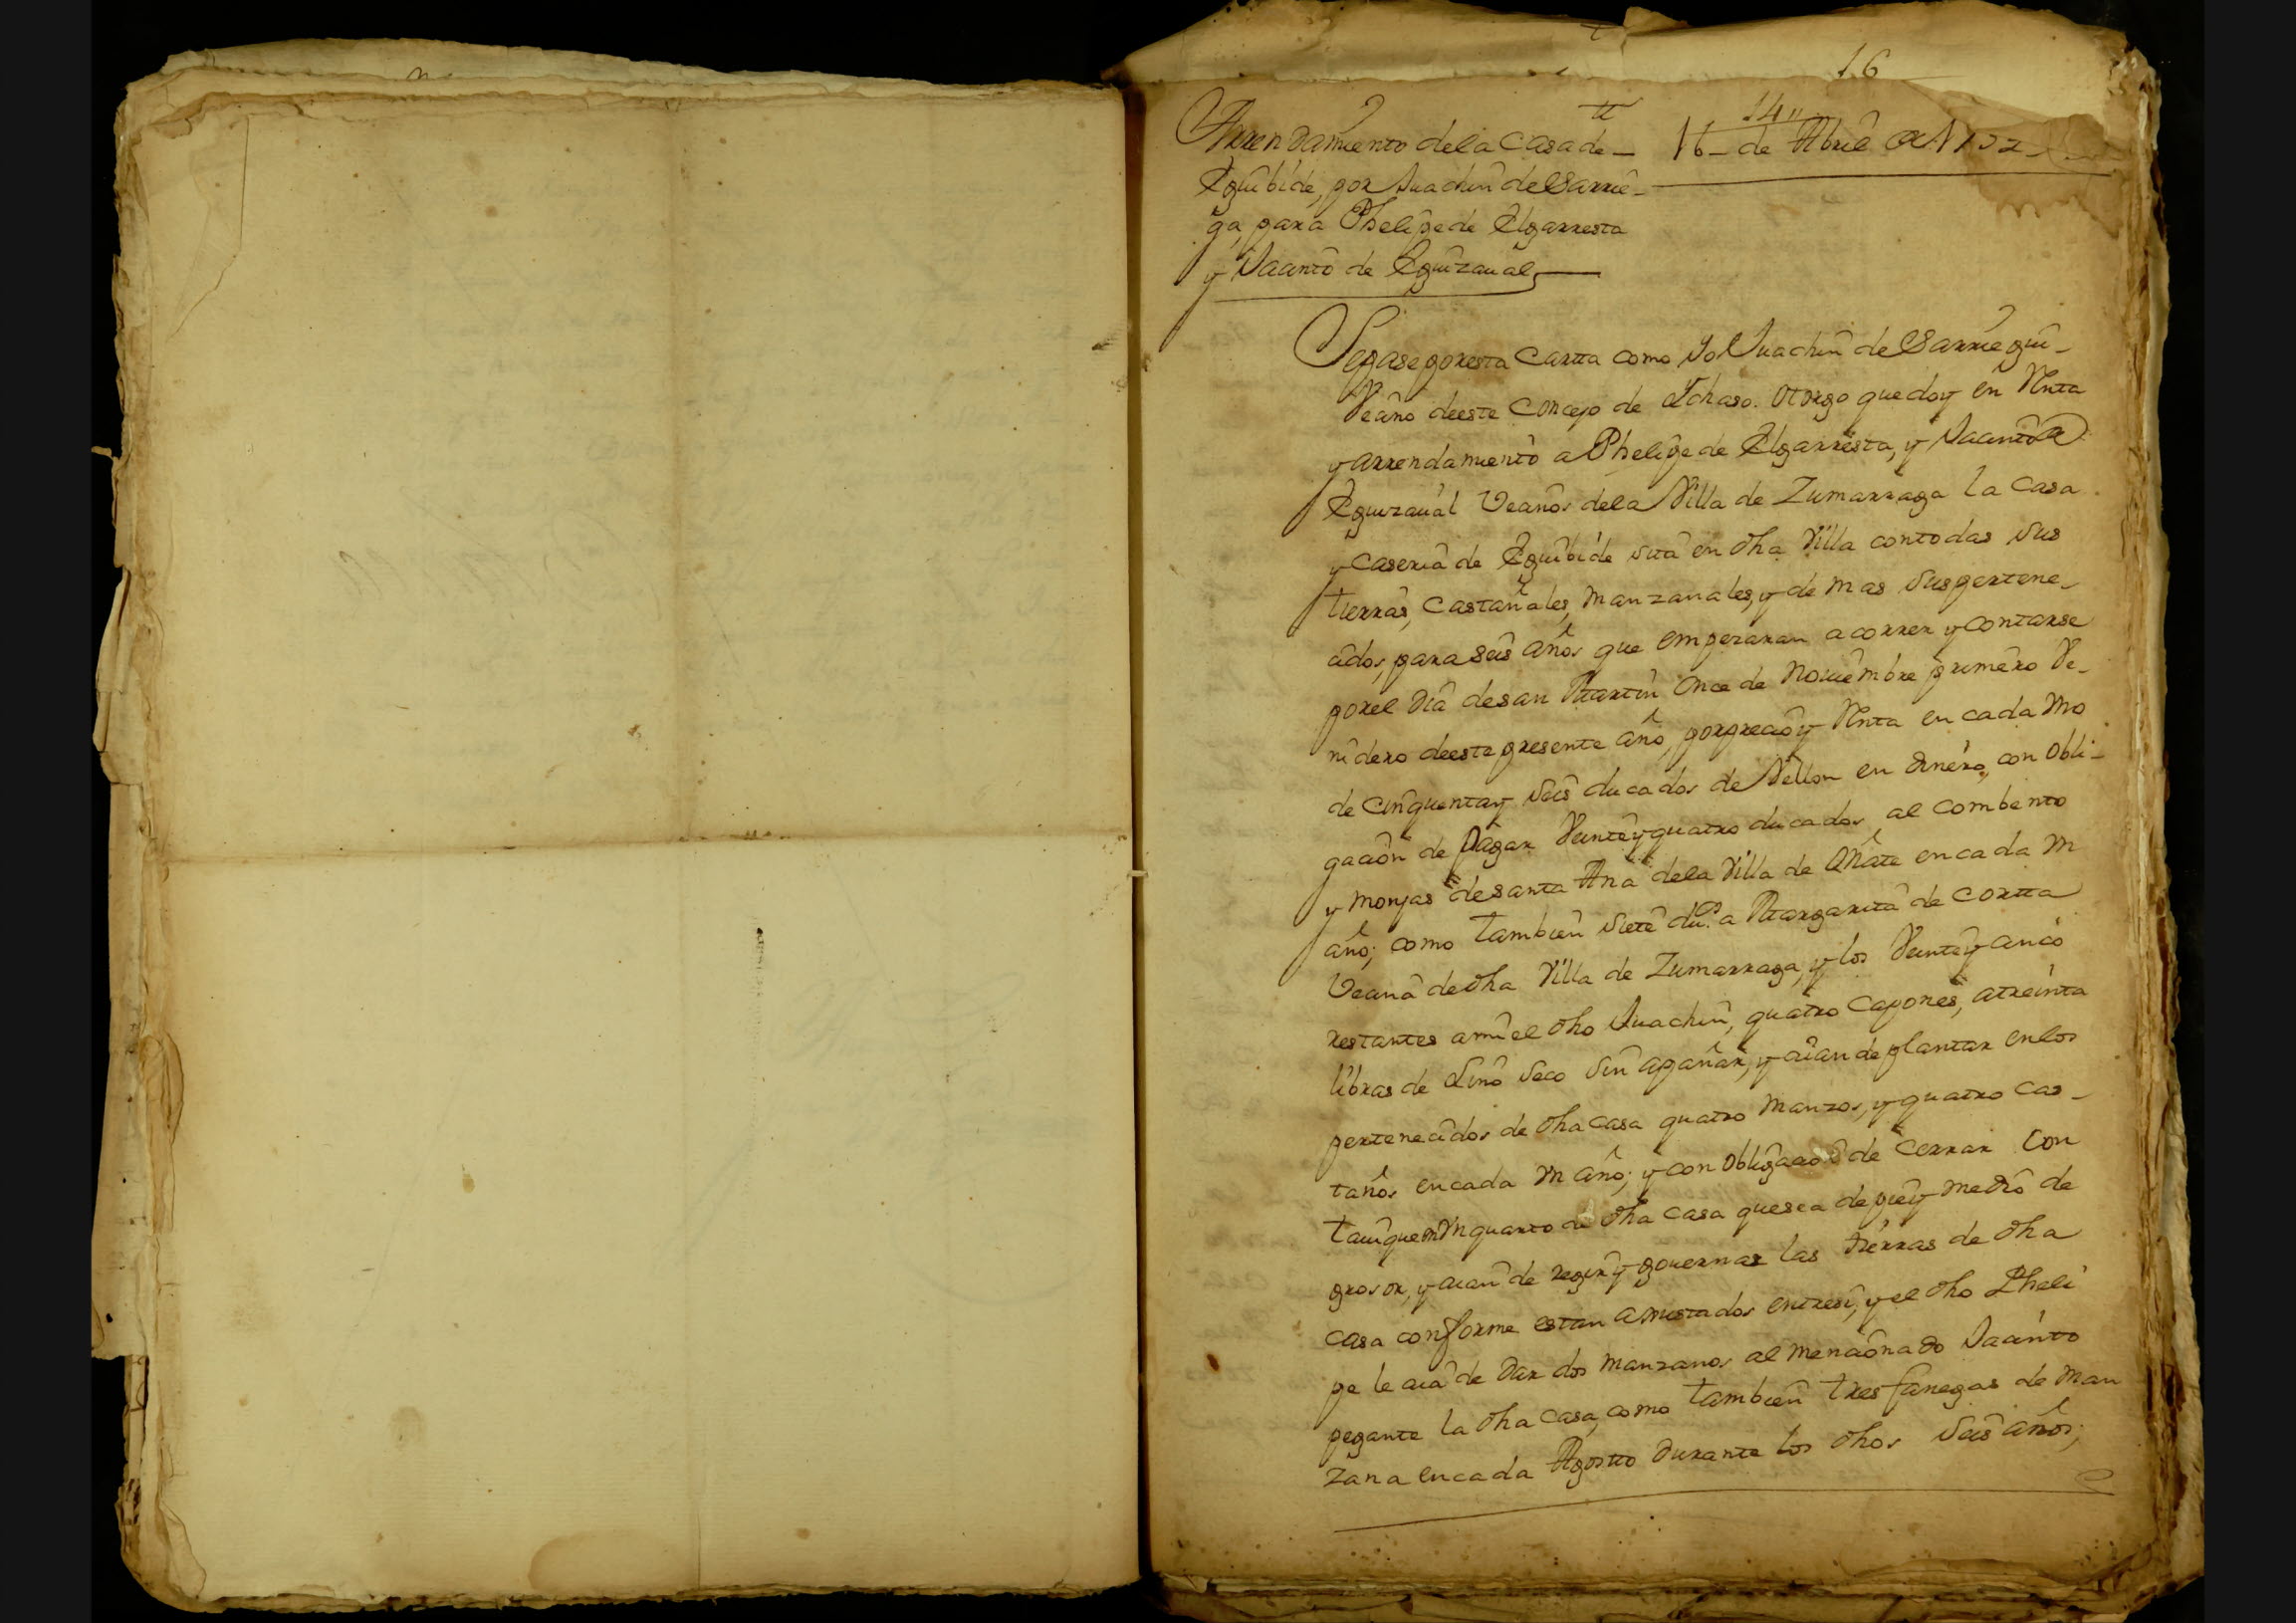 16
14
Arrendamiento dela Casa de
Eguibide, por Juachin de Sarrie-
ga para Phelipe de Elgarresta
y Jacinto de Eguizaual
16 de Abril
Sepase por esta Cartta como Yo Juachin de Sarriegui
Vecino deeste Concejo de Ichaso. Otorgo que doy en Renta
y arrendamiento a Phelipe de Elgarresta, y Jacinto de
Eguizaual Vecinos dela Villa de Zumarraga la Casa
y Caseria de Eguibide sita en dha Villa contodas sus
tierras, Castañales, Manzanales, y de mas suspertene-
cidos, para seis años que empezaran acorrer y contarse
porel dia desan Martin Once de Nouiembre primero Ve-
nidero deeste presente año, por precio y Renta en cada Vno
de Cinquentay seis ducados de Vellon en dinero, con Obli-
gacion de Pagar Veinte y quatro ducados al Combento
y Monjas desanta Ana dela Villa de Oñate encada Vn
año; como tambien siete du.os a Margarita de Cortta
Vecina de dha Villa de Zumarraga, y los Veinte y cinco
restantes ami el dho Juachin, quatro Capones, atreinta
libras de Lino seco sin apañar, y aian de plantar enlos
pertenecidos de dha casa quatro Manzos, y quatro Cas-
taños encada Vn año; y con Obligacion de Cerrar Con
tauique Vn quarto de dha Casa quesea de pie y medio de
grosor, y aian de regir y gouernar las tierras de dha
Casa conforme estan ajustados entresi, y el dho Pheli
pe le aia de dar dos manzanos al mencionado Jacinto
pegante la dha Casa, como tambien tres fanegas de Man
zana encada Agostto durante los dhos seis años;